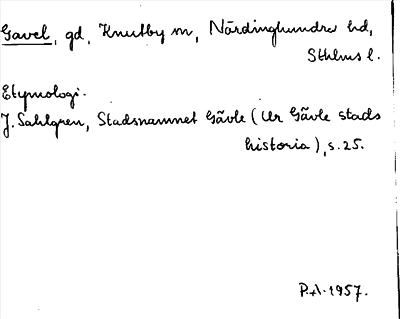 Gavel, gd, Knutby sn, Närdinghundra hd,
Sthlms l.
Etymologi.
J. Sahlgren, Stadsnamnet Gävle (Ur Gävle stads
historia), s. 25.
P.A. 1957.